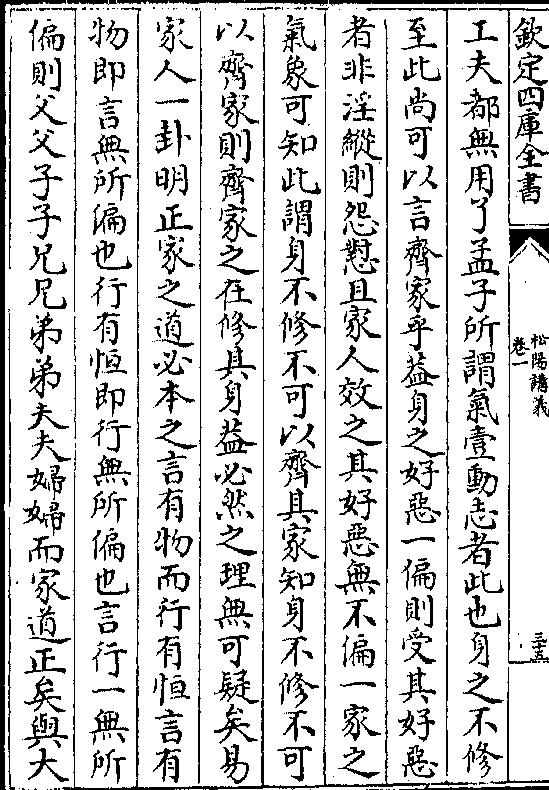 欽定四庫全書
松陽講義
卷一
三十五
工夫都無用了孟子所謂氣壹動志者此也身之不修
至此尚可以言齊家乎葢身之好惡一偏則受其好惡
者非淫縱則怨懟且家人效之其好惡無不偏一家之
氣象可知此謂身不修不可以齊其家知身不修不可
以齊家則齊家之在修其身葢必然之理無可疑矣易
家人一卦明正家之道必本之言有物而行有恒言有
物即言無所偏也行有恒即行無所偏也言行一無所
偏則父父子子兄兄弟弟夫夫婦婦而家道正矣與大